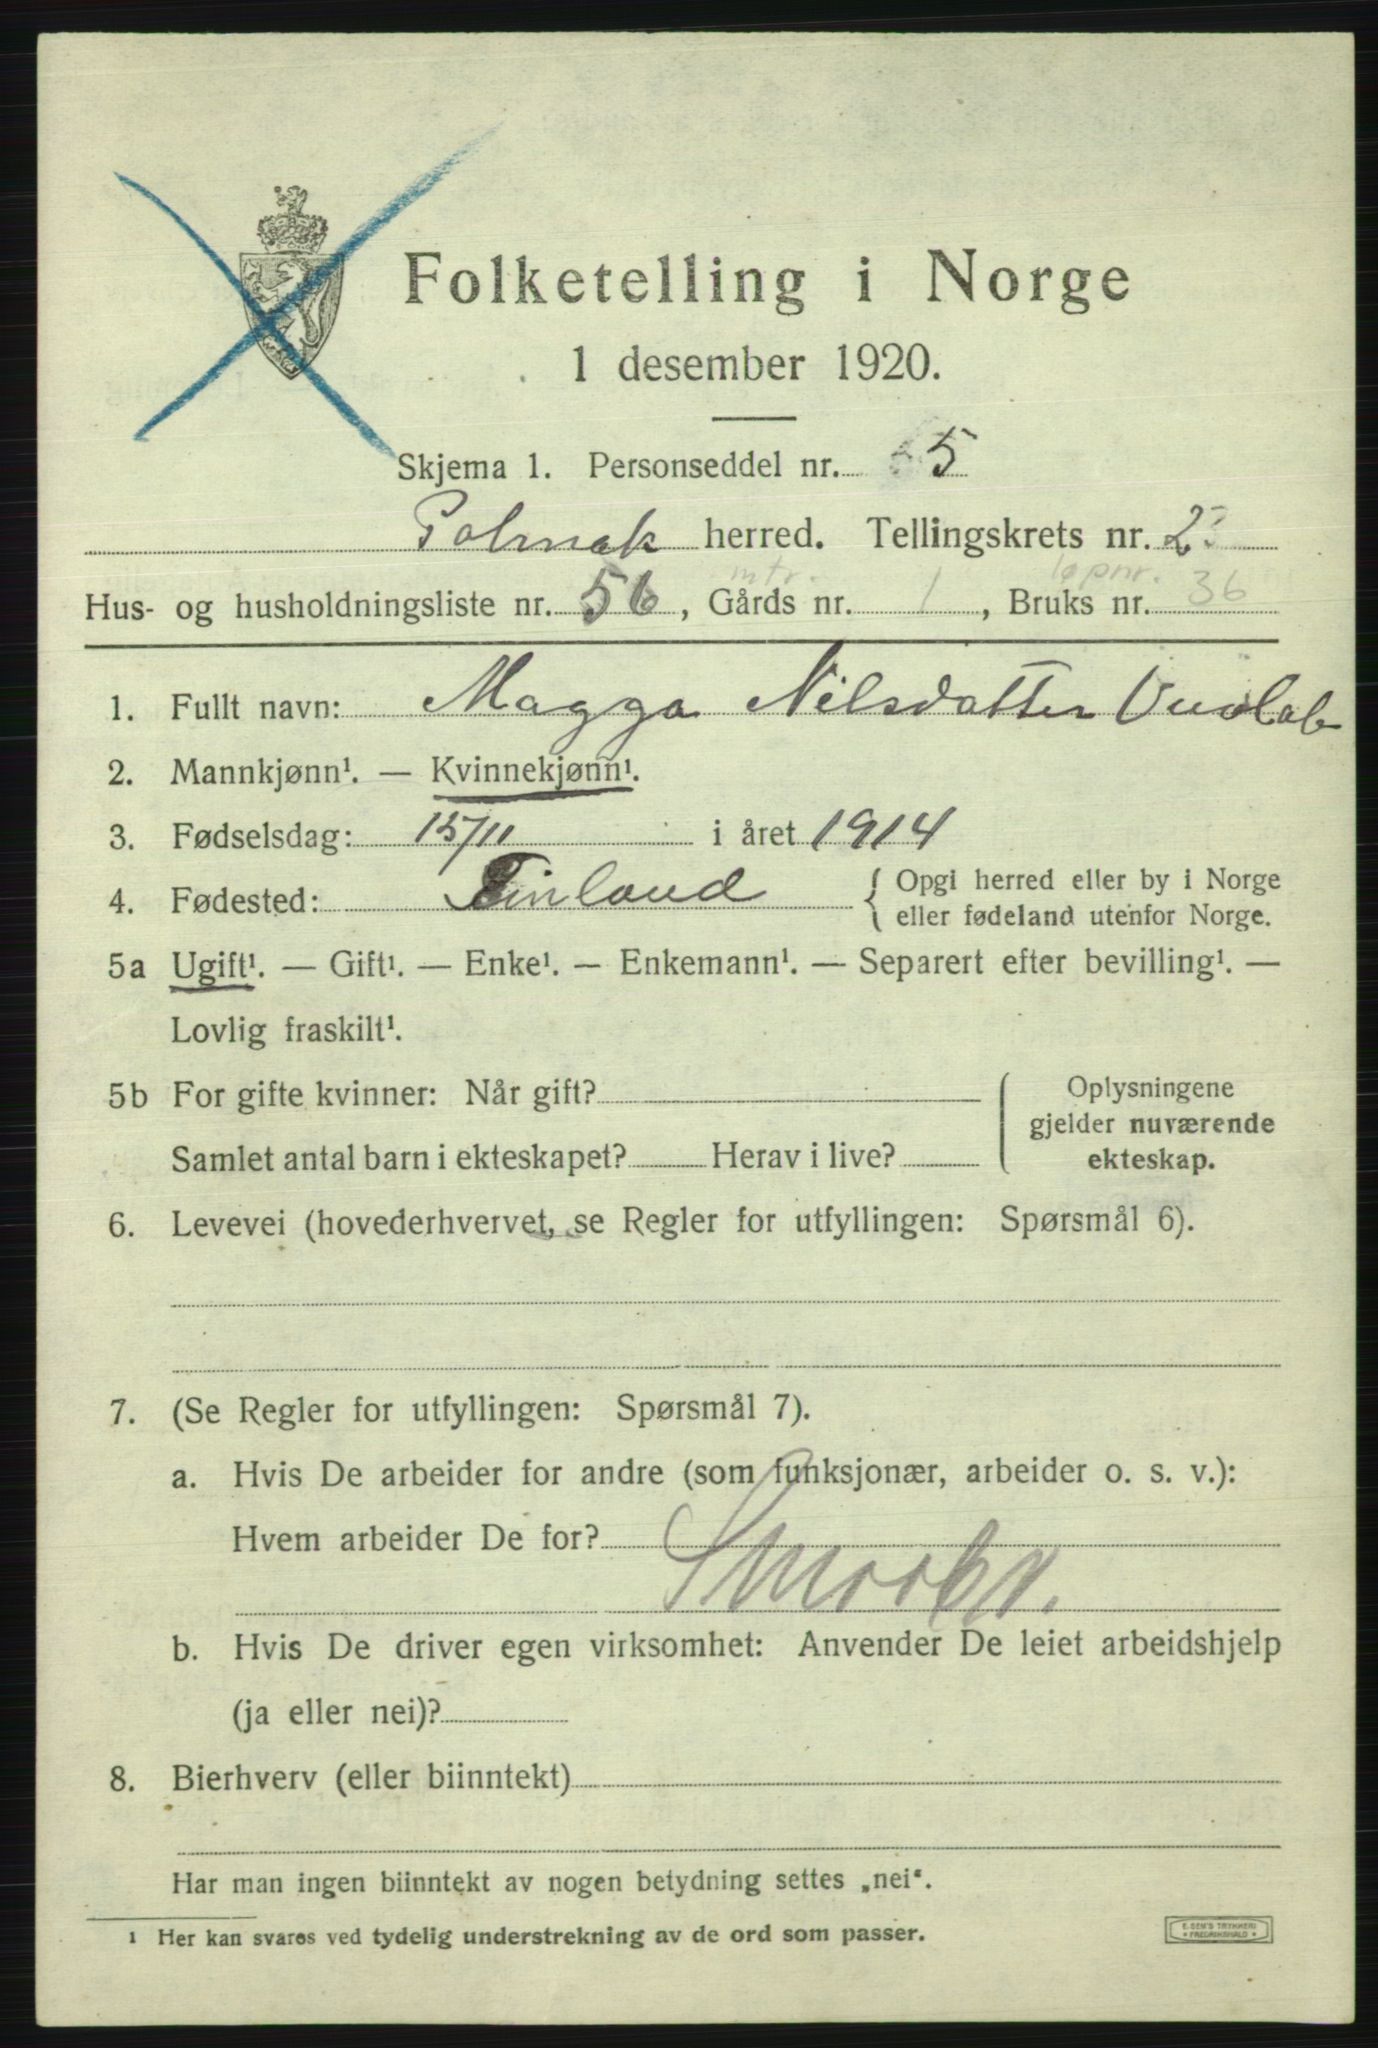 Folketelling i Norge
1 desember 1920.
Skjema 1. Personseddel nr. 5
Polmak herred. Tellingskrets nr. 2
mtr. løpnr.
Hus- og husholdningsliste nr. 56, Gårds nr. 1, Bruks nr. 36
1. Fullt navn: Magga Nilsdatter
2. Mannkjønn¹. — Kvinnekjønn¹.
3. Fødselsdag: 15/11 i året 1914
4. Fødested: Finland { Opgi herred eller by i Norge
eller fødeland utenfor Norge.
5a Ugift¹. — Gift¹. — Enke¹. — Enkemann¹. — Separert efter bevilling¹. —
Lovlig fraskilt¹.
5b For gifte kvinner: Når gift? Oplysningene
gjelder nuværende
Samlet antal barn i ekteskapet? Herav i live? ekteskap.
6. Levevei (hovederhvervet, se Regler for utfyllingen: Spørsmål 6).
7. (Se Regler for utfyllingen: Spørsmål 7).
a. Hvis De arbeider for andre (som funksjonær, arbeider o. s. v.):
Hvem arbeider De for?
b. Hvis De driver egen virksomhet: Anvender De leiet arbeidshjelp
(ja eller nei)?
8. Bierhverv (eller biinntekt)
Har man ingen biinntekt av nogen betydning settes „nei“.
¹ Her kan svares ved tydelig understrekning av de ord som passer.
E. SEM'S TRYKKERI
* FREDRIKSHALD *